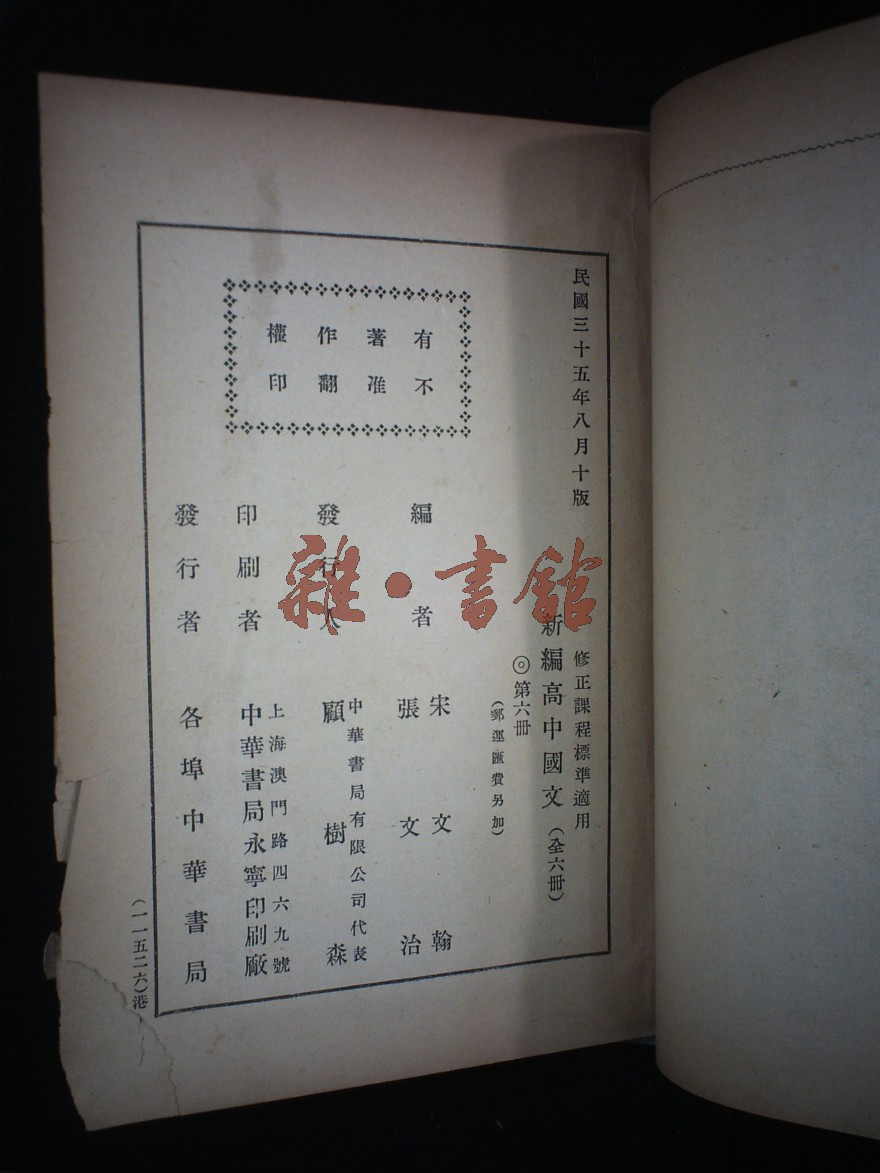 民國三十五年八月十版
修正課程標準適用
新編高中國文（全六冊）
◎第六冊
（郵運匯費另加）
有著作權
不准翻印
編者
宋文翰
張文治
發行人
中華書局有限公司代表
顧樹森
印刷者
上海澳門路四六九號
中華書局永寧印刷廠
發行者
各埠中華書局
（一一五二六）港
雜·書館